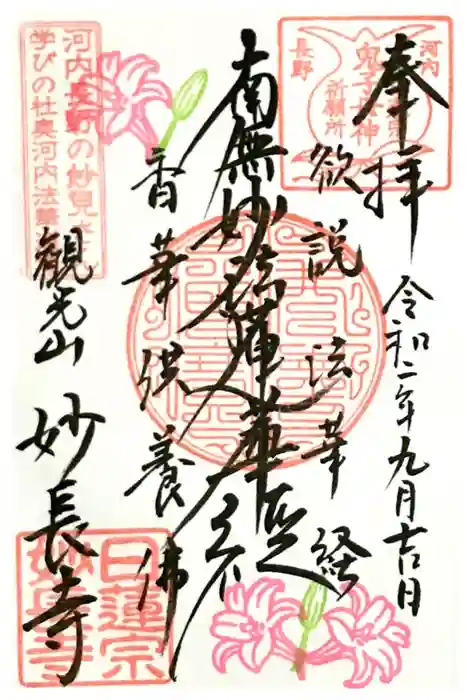 奉拝
令和二年九月吉日
河内
長野
鬼子母神
祈願所
欲説法華経
南無妙法蓮華経
香華供養佛
河内長野の妙見
学びの杜奥河内法華
観光山
妙長寺
日蓮宗
妙長寺